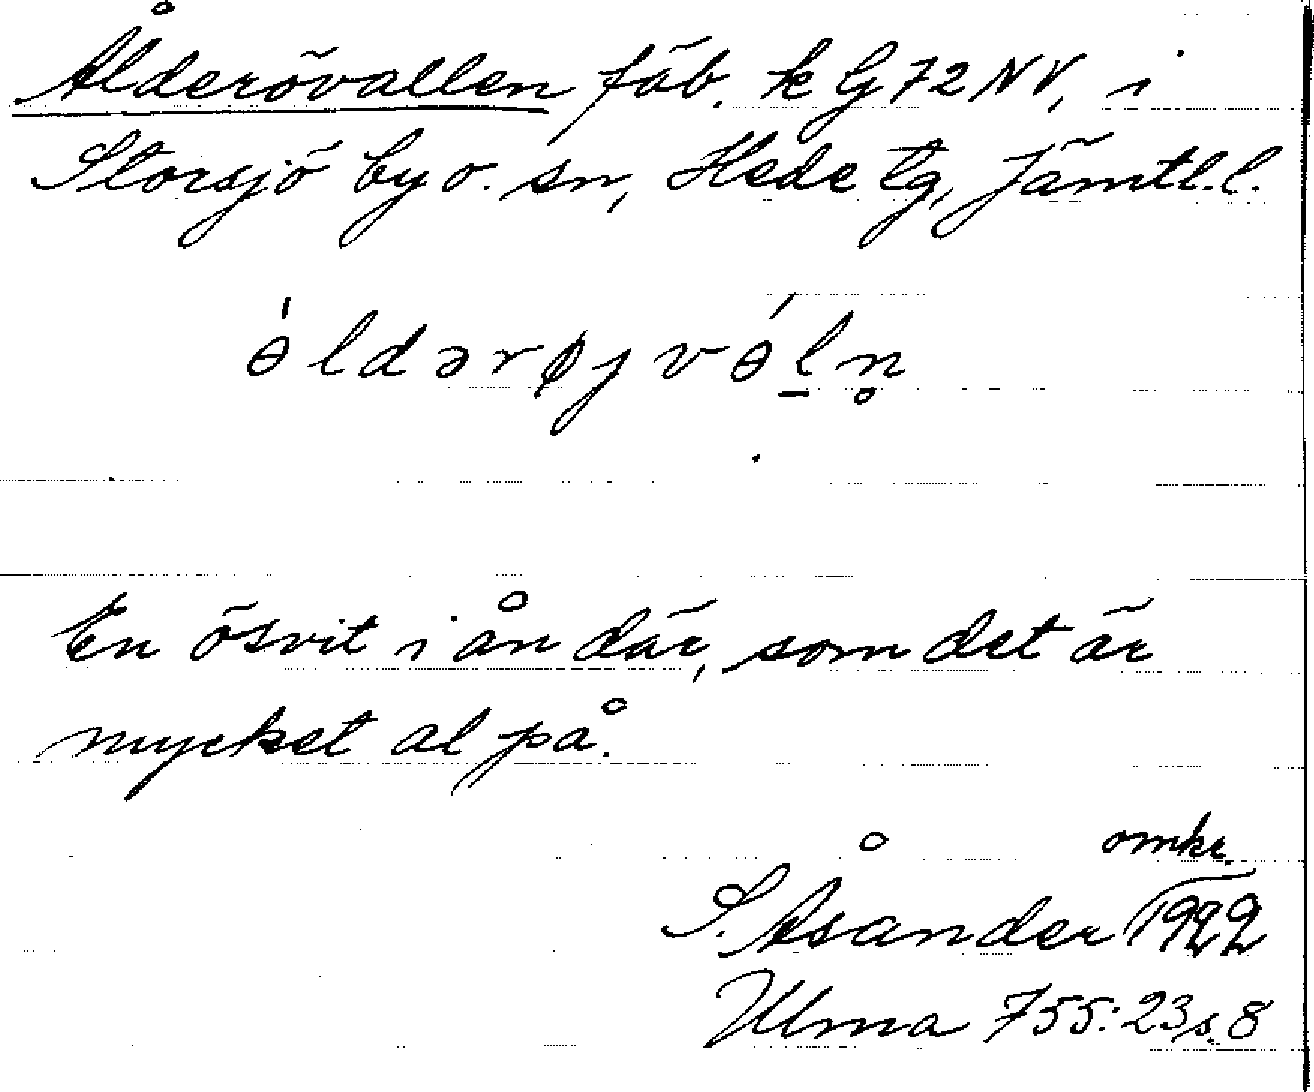 Ålderövallen fäb. k G 72 NV, i
Storsjö by o. sn, Hede tg, Jämtl.l.
ɵ́ldərøjvɵ́l̲n̥
En ösvit i ån där, som det är
mycket al på.
omkr.
S. Åsander 1922
Ulma 755:23 s. 8